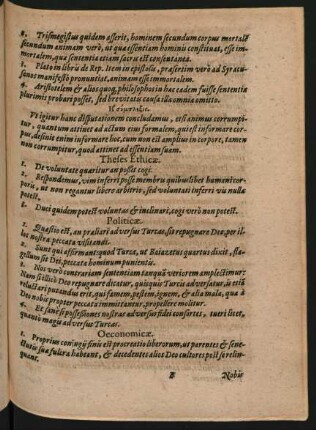 2. Trismegistus quidem asserit, hominem secundum corpus mortalē
secundum animam verò, ut qua essentiam hominis constituat, esse im-
mortalem, qua sententia etiam sacris est consentanea.
3. Plato in libris de Rep. Item in epistolis, præsertim verò ad Syracu-
sanos manifestò pronuntiat, animam esse immortalem.
4. Aristotelem & alios quoque philosophos in hac eadem fuisse sententia
plurimis probari posset, sed brevitatis causa illa omnia omitto.
Ut igitur hanc disputationem concludamus, etsi animus corrumpi-
tur, quantum attinet ad actum eius formalem, qui est informare cor-
pus, desinit enim informare hoc, cum non est amplius in corpore, tamen
non corrumpitur, quod attinet ad essentiam suam.
Theses Ethicæ.
1. De voluntate quæritur an possit cogi.
2. Respondemus, vim inferri posse membris quibuslibet humani cor-
poris, ut non regantur libero arbitrio, sed voluntati inferri vis nulla
potest.
3. Duci quidem potest voluntas & inclinari, cogi verò non potest.
Politicæ.
1. Quæstio est, an præliari adversus Turcas sit repugnare Deo, per il-
los nostra peccata visitandi.
2. Sunt qui affirmant: quod Turca, ut Baiazetus quartus dixit, fla-
gellum sit Dei, peccata hominum punientis.
3. Nos verò contrariam sententiam tanquā veriorem amplectimur:
Nam si is dicit Deo repugnare dicatur, quisquis Turcis adversatur, is etiā
reluctari putandus erit, qui famem, pestem, ignem, & alia mala, qua à
Deo nobis propter peccata immittantur, propellere molitur.
4. Et sanè si possessiones nostras adversus fidei consortes, tueri licet,
quantò magis adversus Turcas.
Oeconomicæ.
1. Proprius coniugij finis est procreatio liberorum, ut parentes & sene-
ctutis sua fulcra habeant, & decedentes alios Dei cultores post se relin-
quant.
B Nobis